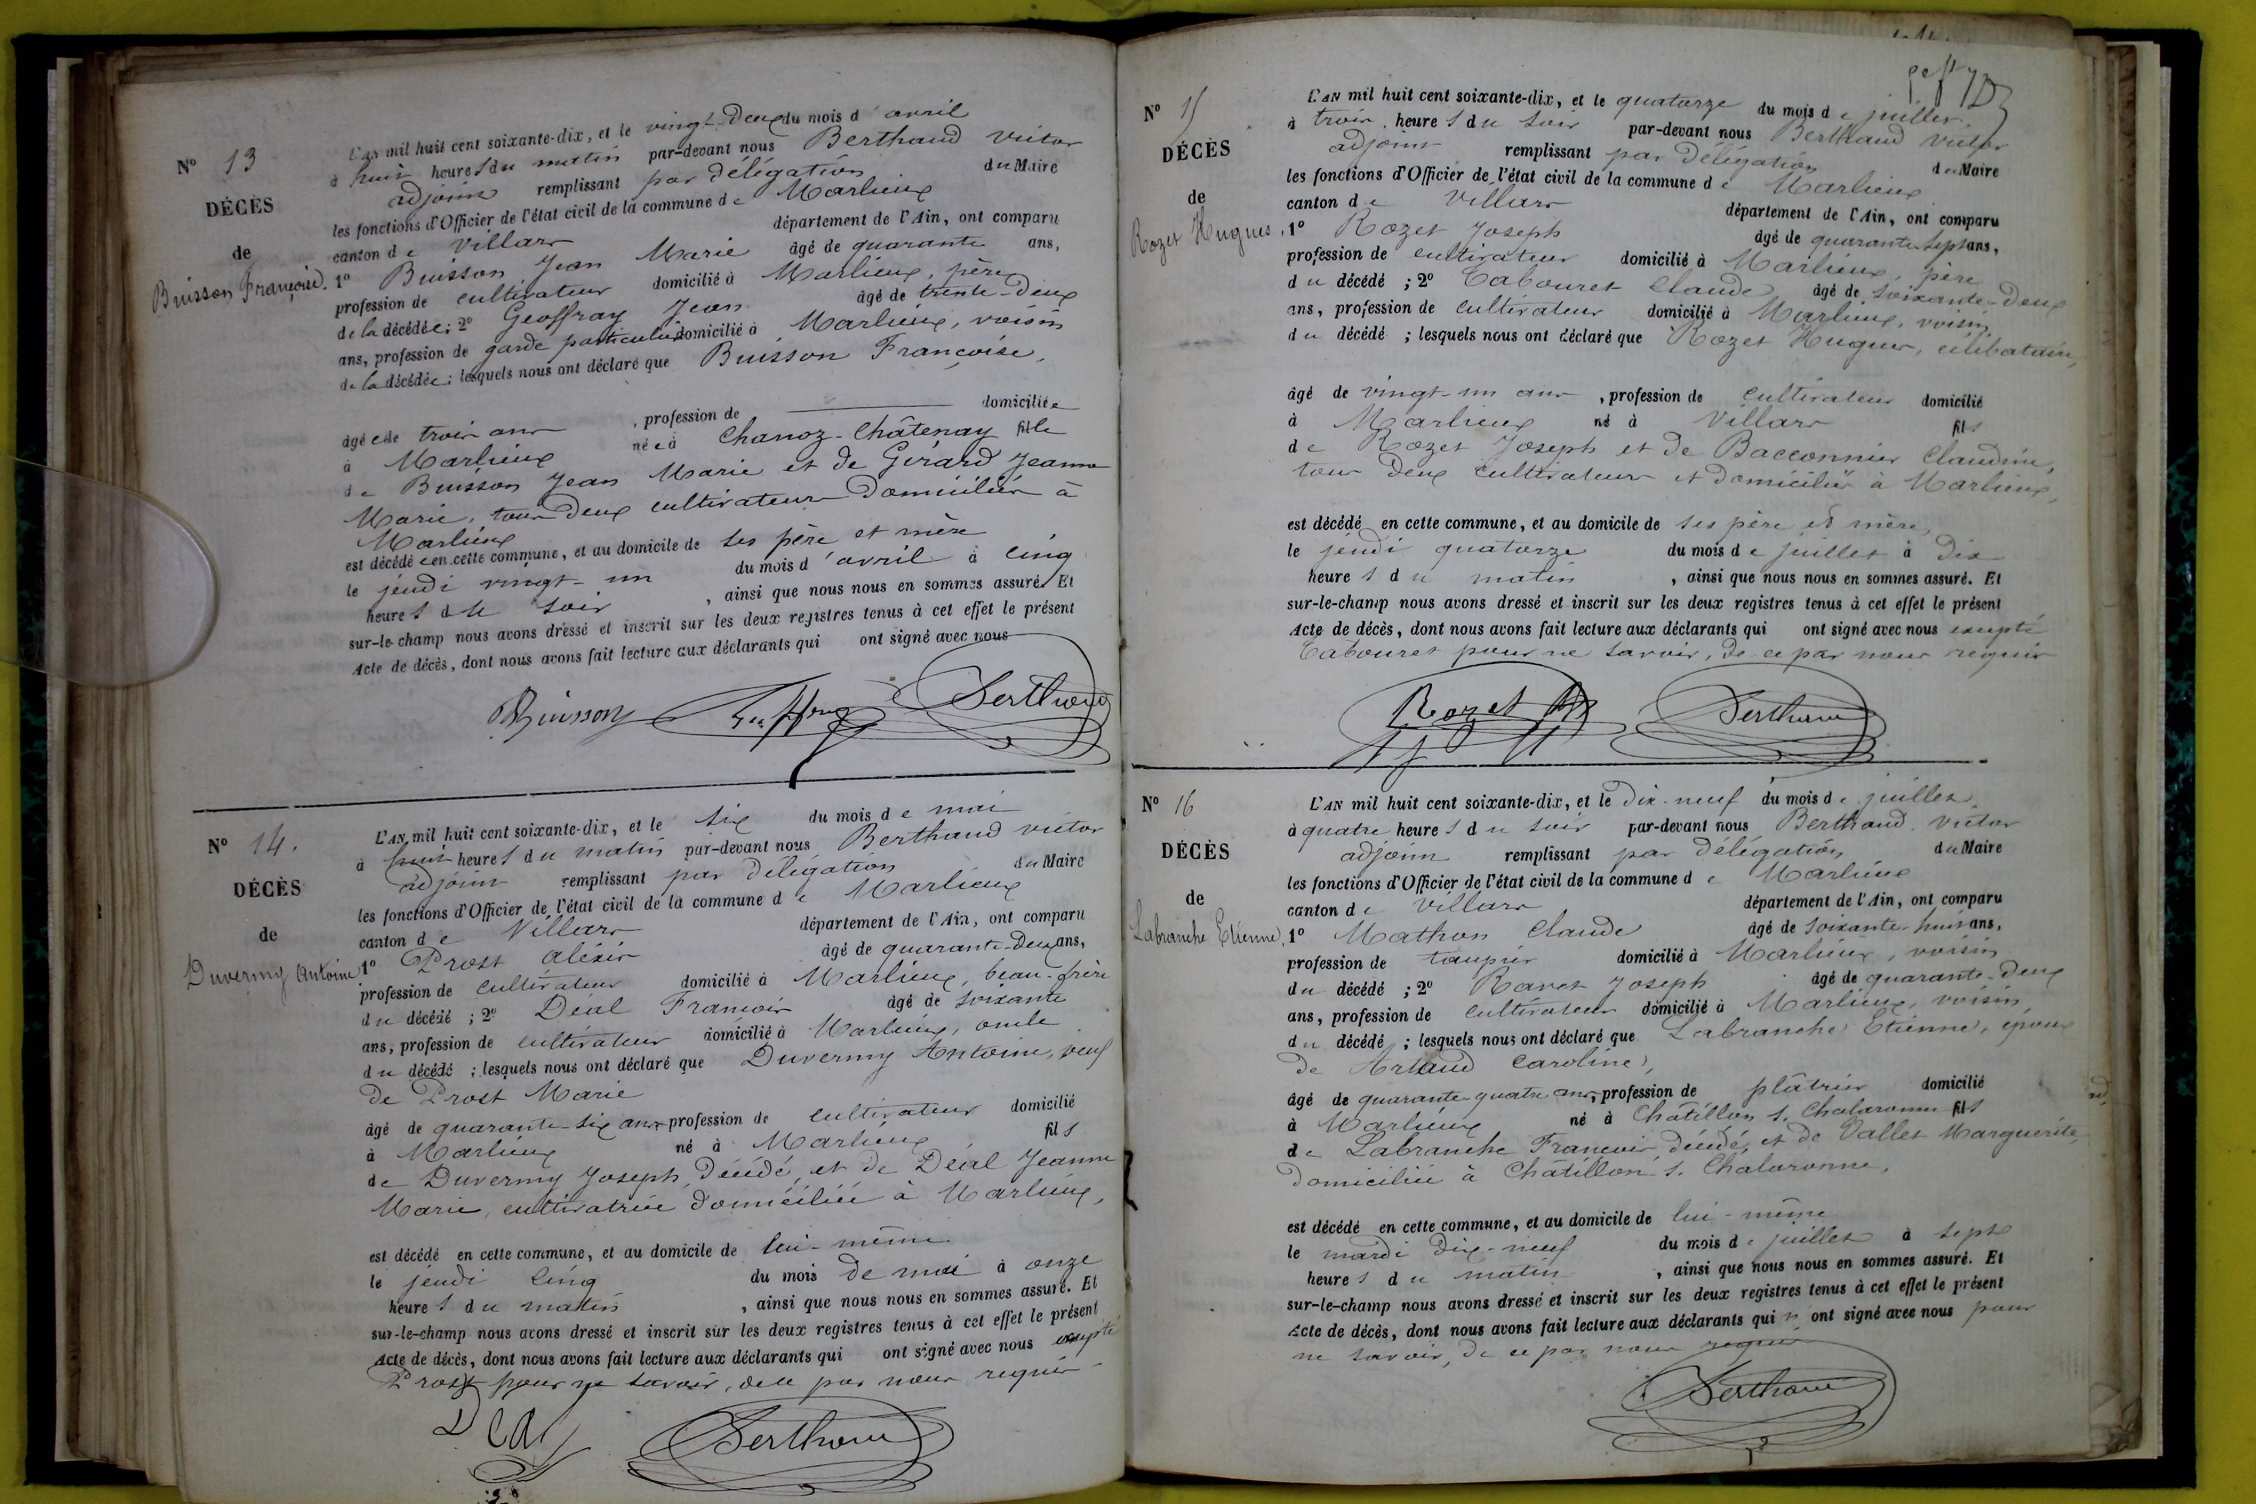 N° 13
DÉCÈS
de
Buisson Françoise.
L'AN mil huit cent soixante-dix, et le vingt-deux du mois d'avril
à huit heures du matin par-devant nous Berthaud victor
adjoint remplissant par délégation du Maire
les fonctions d'Officier de l'état civil de la commune de Marlieux
canton de Villars département de l'Ain, ont comparu
1° Buisson Jean Marie âgé de quarante ans,
profession de cultivateur domicilié à Marlieux, père
de la décédée; 2° Geoffray Jean âgé de trente-deux
ans, profession de garde particulier domicilié à Marlieux, voisin
de la décédée; lesquels nous ont déclaré que Buisson Françoise,
âgée de trois ans , profession de domiciliée
à Marlieux née à Chanoz-Châtenay fille
de Buisson Jean Marie et de Girard Jeanne
Marie, tous deux cultivateurs domiciliés à
Marlieux
est décédée en cette commune, et au domicile de ses père et mère
le jeudi vingt-un du mois d'avril à cinq
heures du soir , ainsi que nous nous en sommes assuré. Et
sur-le-champ nous avons dressé et inscrit sur les deux registres tenus à cet effet le présent
Acte de décès, dont nous avons fait lecture aux déclarants qui ont signé avec nous
Buisson Geoffray Berthaud
N° 14.
DÉCÈS
de
Duverny Antoine
L'AN mil huit cent soixante-dix, et le six du mois de mai
à huit heures du matin par-devant nous Berthaud victor
adjoint remplissant par délégation du Maire
les fonctions d'Officier de l'état civil de la commune de Marlieux
canton de Villars département de l'Ain, ont comparu
1° Prost aléxis âgé de quarante-deux ans,
profession de cultivateur domicilié à Marlieux, beau-frère
du décédé ; 2° Déal François âgé de soixante
ans, profession de cultivateur domicilié à Marlieux, oncle
du décédé ; lesquels nous ont déclaré que Duverny Antoine, veuf
de Prost Marie
âgé de quarante-six ans profession de cultivateur domicilié
à Marlieux né à Marlieux fils
de Duverny Joseph, décédé, et de Déal Jeanne
Marie, cultivatrice domiciliée à Marlieux,
est décédé en cette commune, et au domicile de lui-même
le jeudi cinq du mois de mai à onze
heures du matin , ainsi que nous nous en sommes assuré. Et
sur-le-champ nous avons dressé et inscrit sur les deux registres tenus à cet effet le présent
Acte de décès, dont nous avons fait lecture aux déclarants qui ont signé avec nous excepté
Prost pour ne savoir, de ce par nous requis
Deal Berthaud
N° 15
DÉCÈS
de
Rozet Hugues.
L'AN mil huit cent soixante-dix, et le quatorze du mois de juillet
à trois heures du soir par-devant nous Berthaud victor
adjoint remplissant par délégation du Maire
les fonctions d'Officier de l'état civil de la commune de Marlieux
canton de Villars département de l'Ain, ont comparu
1° Rozet Joseph âgé de quarante-sept ans,
profession de cultivateur domicilié à Marlieux, père
du décédé ; 2° Tabouret Claude âgé de soixante-deux
ans, profession de cultivateur domicilié à Marlieux, voisin
du décédé ; lesquels nous ont déclaré que Rozet Hugues, célibataire,
âgé de vingt-un ans , profession de cultivateur domicilié
à Marlieux né à Villars fils
de Rozet Joseph et de Bacconnier Claudine,
tous deux cultivateurs et domiciliés à Marlieux,
est décédé en cette commune, et au domicile de ses père et mère,
le jeudi quatorze du mois de juillet à dix
heures du matin , ainsi que nous nous en sommes assuré. Et
sur-le-champ nous avons dressé et inscrit sur les deux registres tenus à cet effet le présent
Acte de décès, dont nous avons fait lecture aux déclarants qui ont signé avec nous excepté
Tabouret pour ne savoir, de ce par nous requis
Rozet Berthaud
N° 16
DÉCÈS
de
Labranche Etienne,
L'AN mil huit cent soixante-dix, et le dix-neuf du mois de juillet
à quatre heures du soir par-devant nous Berthaud victor
adjoint remplissant par délégation du Maire
les fonctions d'Officier de l'état civil de la commune de Marlieux
canton de Villars département de l'Ain, ont comparu
1° Mathon Claude âgé de soixante-huit ans,
profession de taupier domicilié à Marlieux, voisin
du décédé ; 2° Ravet Joseph âgé de quarante-deux
ans, profession de cultivateur domicilié à Marlieux, voisin
du décédé ; lesquels nous ont déclaré que Labranche Etienne, époux
de Artaud Caroline,
âgé de quarante-quatre ans, profession de plâtrier domicilié
à Marlieux né à Châtillon s. Chalaronne fils
de Labranche François décédé, et de Vallet Marguerite,
domiciliée à Châtillon s. Chalaronne,
est décédé en cette commune, et au domicile de lui-même
le mardi dix-neuf du mois de juillet à sept
heures du matin , ainsi que nous nous en sommes assuré. Et
sur-le-champ nous avons dressé et inscrit sur les deux registres tenus à cet effet le présent
Acte de décès, dont nous avons fait lecture aux déclarants qui n'ont signé avec nous pour
ne savoir, de ce par nous requis
Berthaud